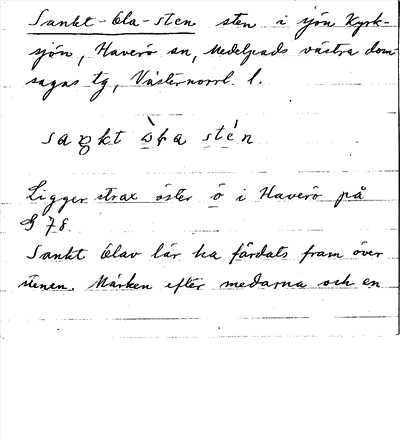 Sankt-Ola-sten sten i sjön Kyrk-
sjön, Haverö sn, Medelpads västra dom-
sagas tg, Västernorrl. l.
st́en
Ligger strax öster ö i Haverö på
S 78.
Sankt Olav lär ha färdats fram över
stenen. Märken efter medarna och en